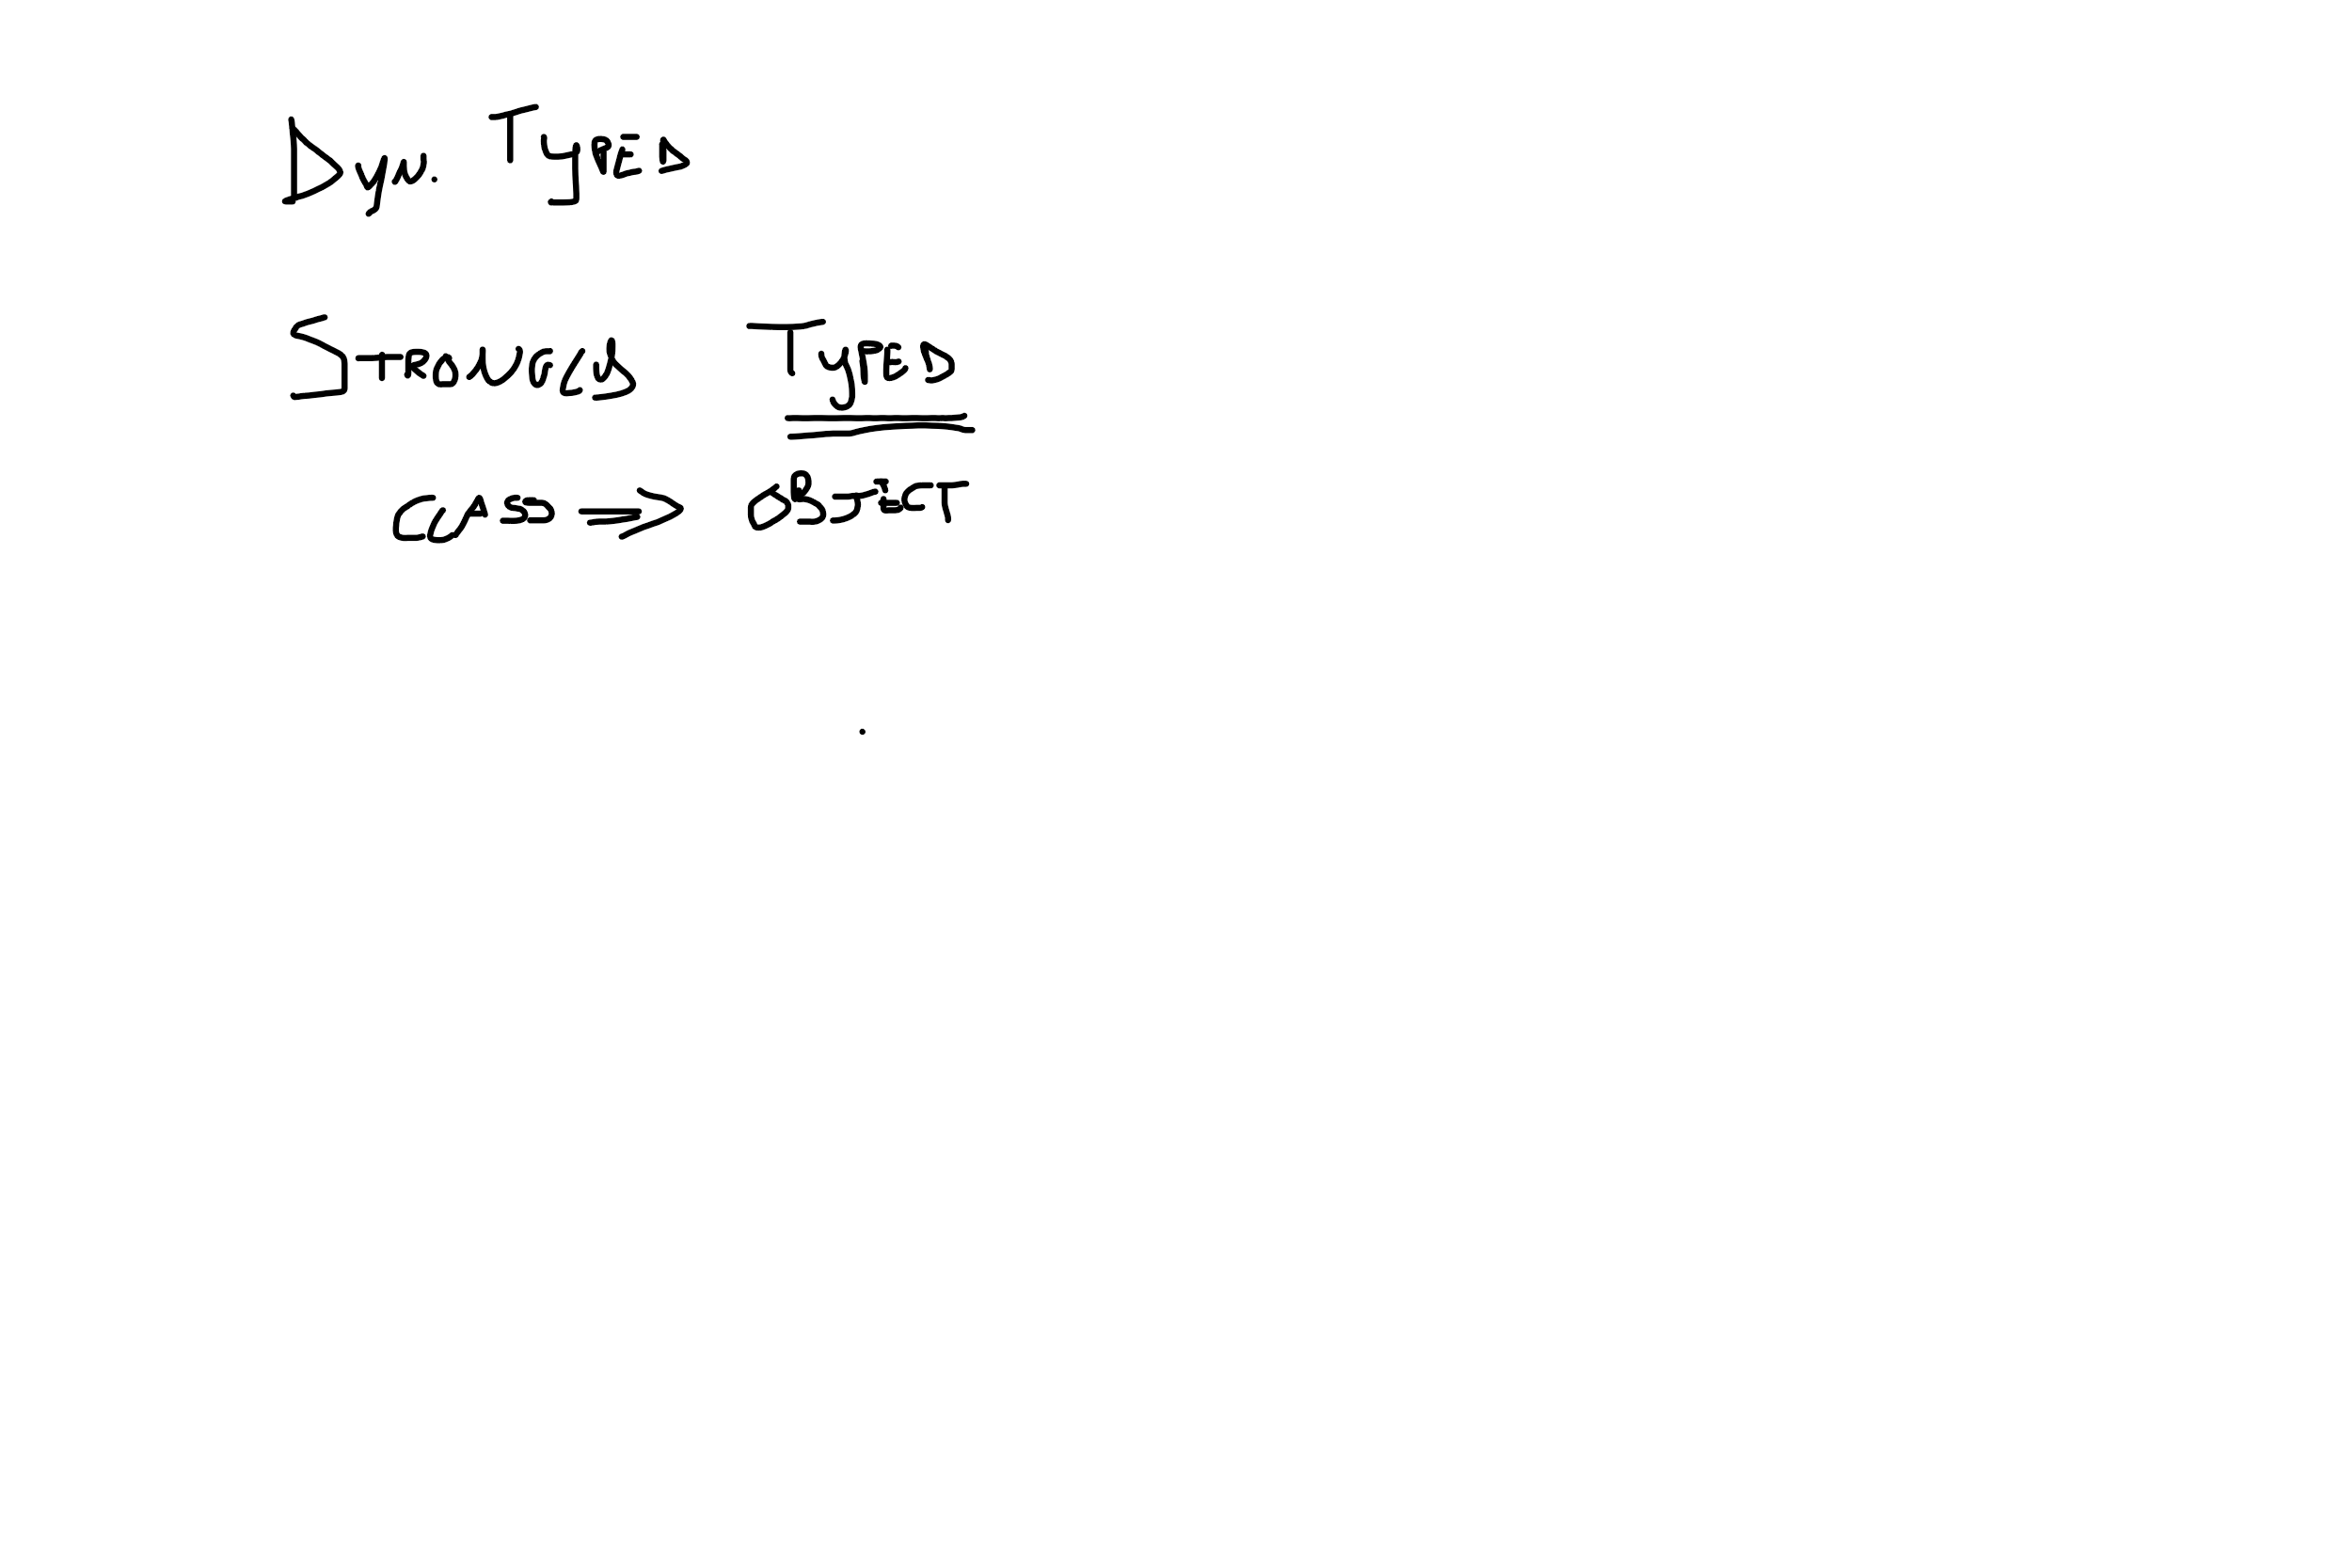 Dyn. TypED
STRONGly TypED
CLASS => OBJECT